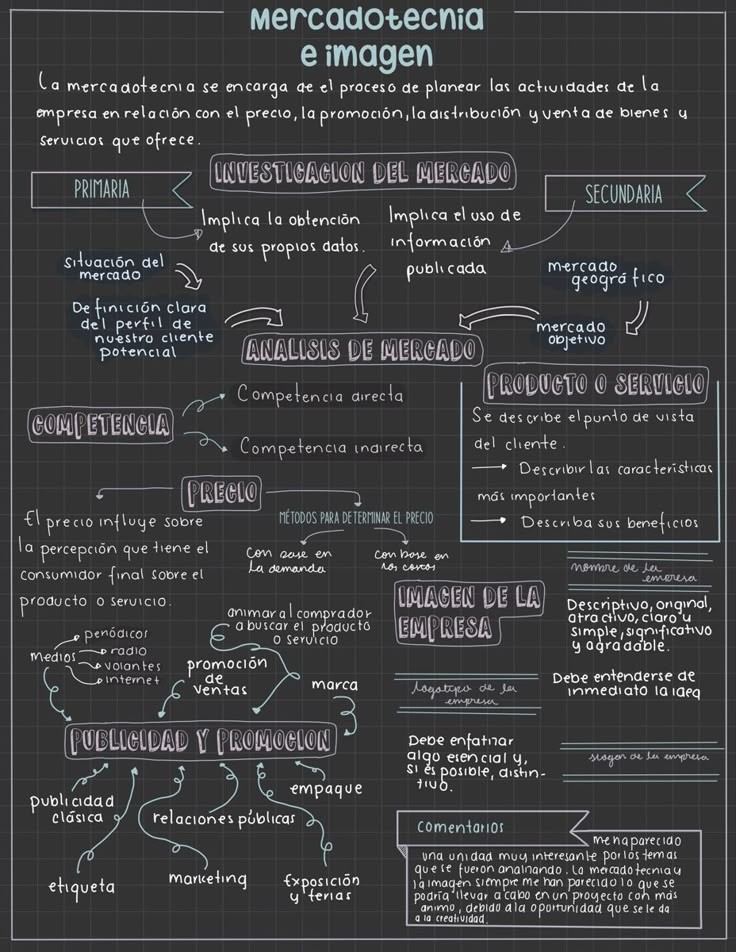 Mercadotecnia
e imagen
La mercadotecnia se encarga de el proceso de planear las actividades de la
empresa en relación con el precio, la promoción, la distribución y venta de bienes y
servicios que ofrece.
INVESTIGACION DEL MERCADO
PRIMARIA
SECUNDARIA
Implica la obtención
de sus propios datos.
Implica el uso de
información
publicada
Situación del
mercado
Definición clara
del perfil de
nuestro cliente
potencial
mercado
geográfico
mercado
objetivo
ANALISIS DE MERCADO
COMPETENCIA
Competencia directa
Competencia indirecta
PRODUCTO O SERVICIO
Se describe el punto de vista
del cliente.
Describir las características
más importantes
Describa sus beneficios
PRECIO
El precio influye sobre
la percepción que tiene el
consumidor final sobre el
producto o servicio.
MÉTODOS PARA DETERMINAR EL PRECIO
Con base en
la demanda
Con base en
los costos
IMAGEN DE LA
EMPRESA
nombre de la
empresa
Descriptivo, original,
atractivo, claro y
simple, significativo
y agradable.
Debe entenderse de
inmediato la idea
logotipo de la
empresa
Debe enfatizar
algo esencial y,
si es posible, distin-
tivo.
slogan de la empresa
medios
periódicos
radio
volantes
internet
promoción
de
ventas
animar al comprador
a buscar el producto
o servicio
marca
PUBLICIDAD Y PROMOCION
publicidad
clásica
etiqueta
relaciones públicas
marketing
empaque
Exposición
y ferias
Comentarios
me ha parecido
una unidad muy interesante por los temas
que se fueron analizando. La mercadotecnia y
la imagen siempre me han parecido lo que se
podría llevar a cabo en un proyecto con más
animo, debido a la oportunidad que se le da
a la creatividad.